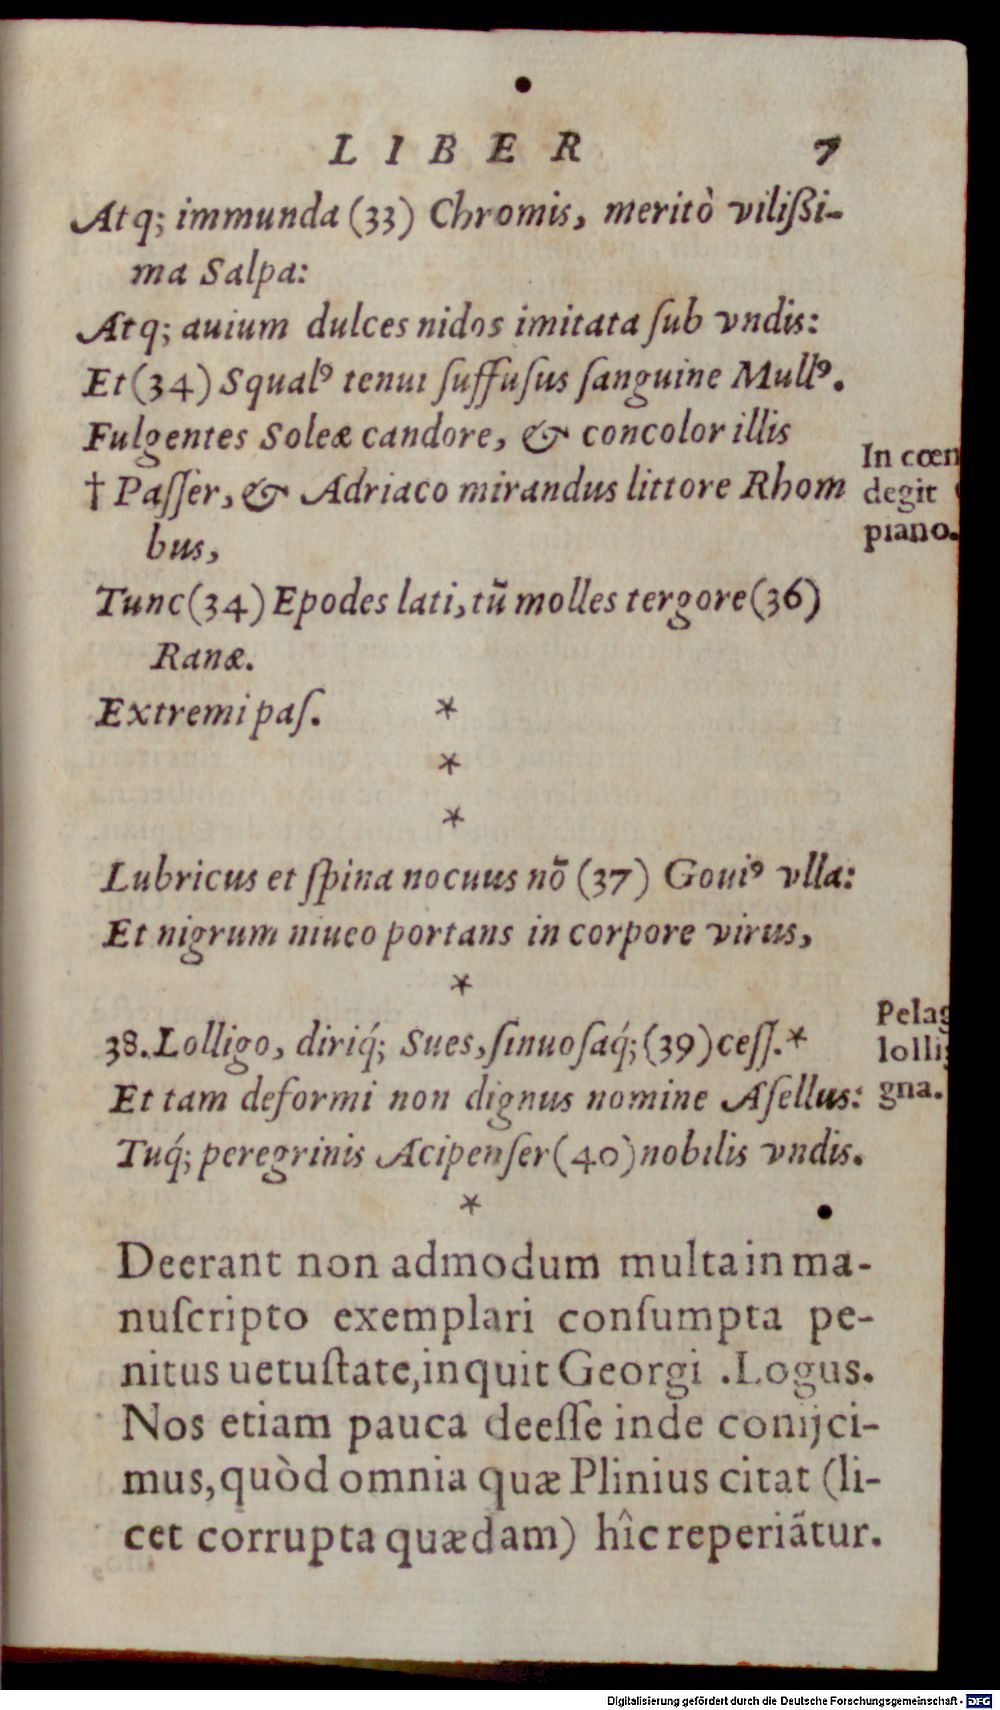 LIBER 7
Atq; immunda (33) Chromis, meritò vilißi-
ma Salpa:
Atq; auium dulces nidos imitata ſub vndis:
Et (34) Squalꝰ tenui ſuffuſus ſanguine Mullꝰ.
Fulgentes Soleæ candore, & concolor illis
† Paſſer, & Adriaco mirandus littore Rhom
bus,
In cœn
degit
piano.
Tunc (34) Epodes lati, tũ molles tergore (36)
Ranæ.
Extremi paſ. *
*
*
Lubricus et ſpina nocuus nõ (37) Gouiꝰ vlla:
Et nigrum niueo portans in corpore virus,
*
38. Lolligo, diriq́; Sues, ſinuoſaq́; (39) ceſſ. *
Et tam deformi non dignus nomine Aſellus:
Tuq́; peregrinis Acipenſer (40) nobilis vndis.
*
Pelag
lollig
gna.
Deerant non admodum multa in ma-
nuſcripto exemplari conſumpta pe-
nitus uetuſtate, inquit Georgi .Logus.
Nos etiam pauca deeſſe inde conijci-
mus, quòd omnia quæ Plinius citat (li-
cet corrupta quædam) hîc reperiãtur.
Digitalisierung gefördert durch die Deutsche Forschungsgemeinschaft - DFG